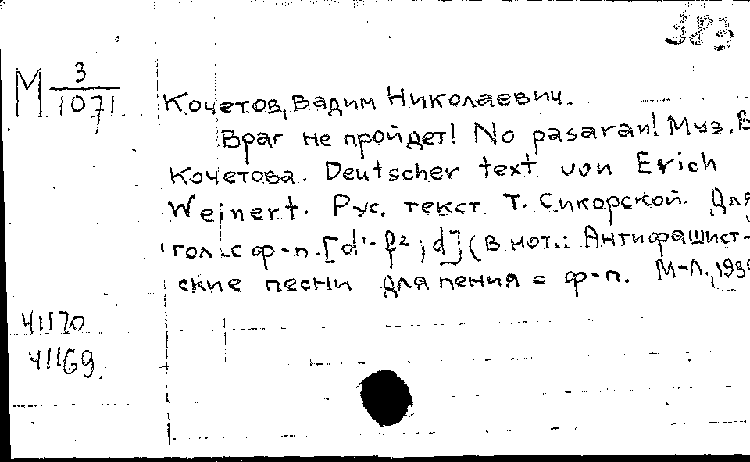 383
М 3/1071
Кочетов, Вадим Николаевич.
Враг не пройдет! No pasaran! Муз. В
Кочетова. Deutscher text von Erich
Weinert. Рус. текст Т. Сикорской. Для
гол. с ф-п. [d¹-f²; d] (В нот.: Антифашист-
ские песни для пения с ф-п. М-Л., 193
41170
41169.